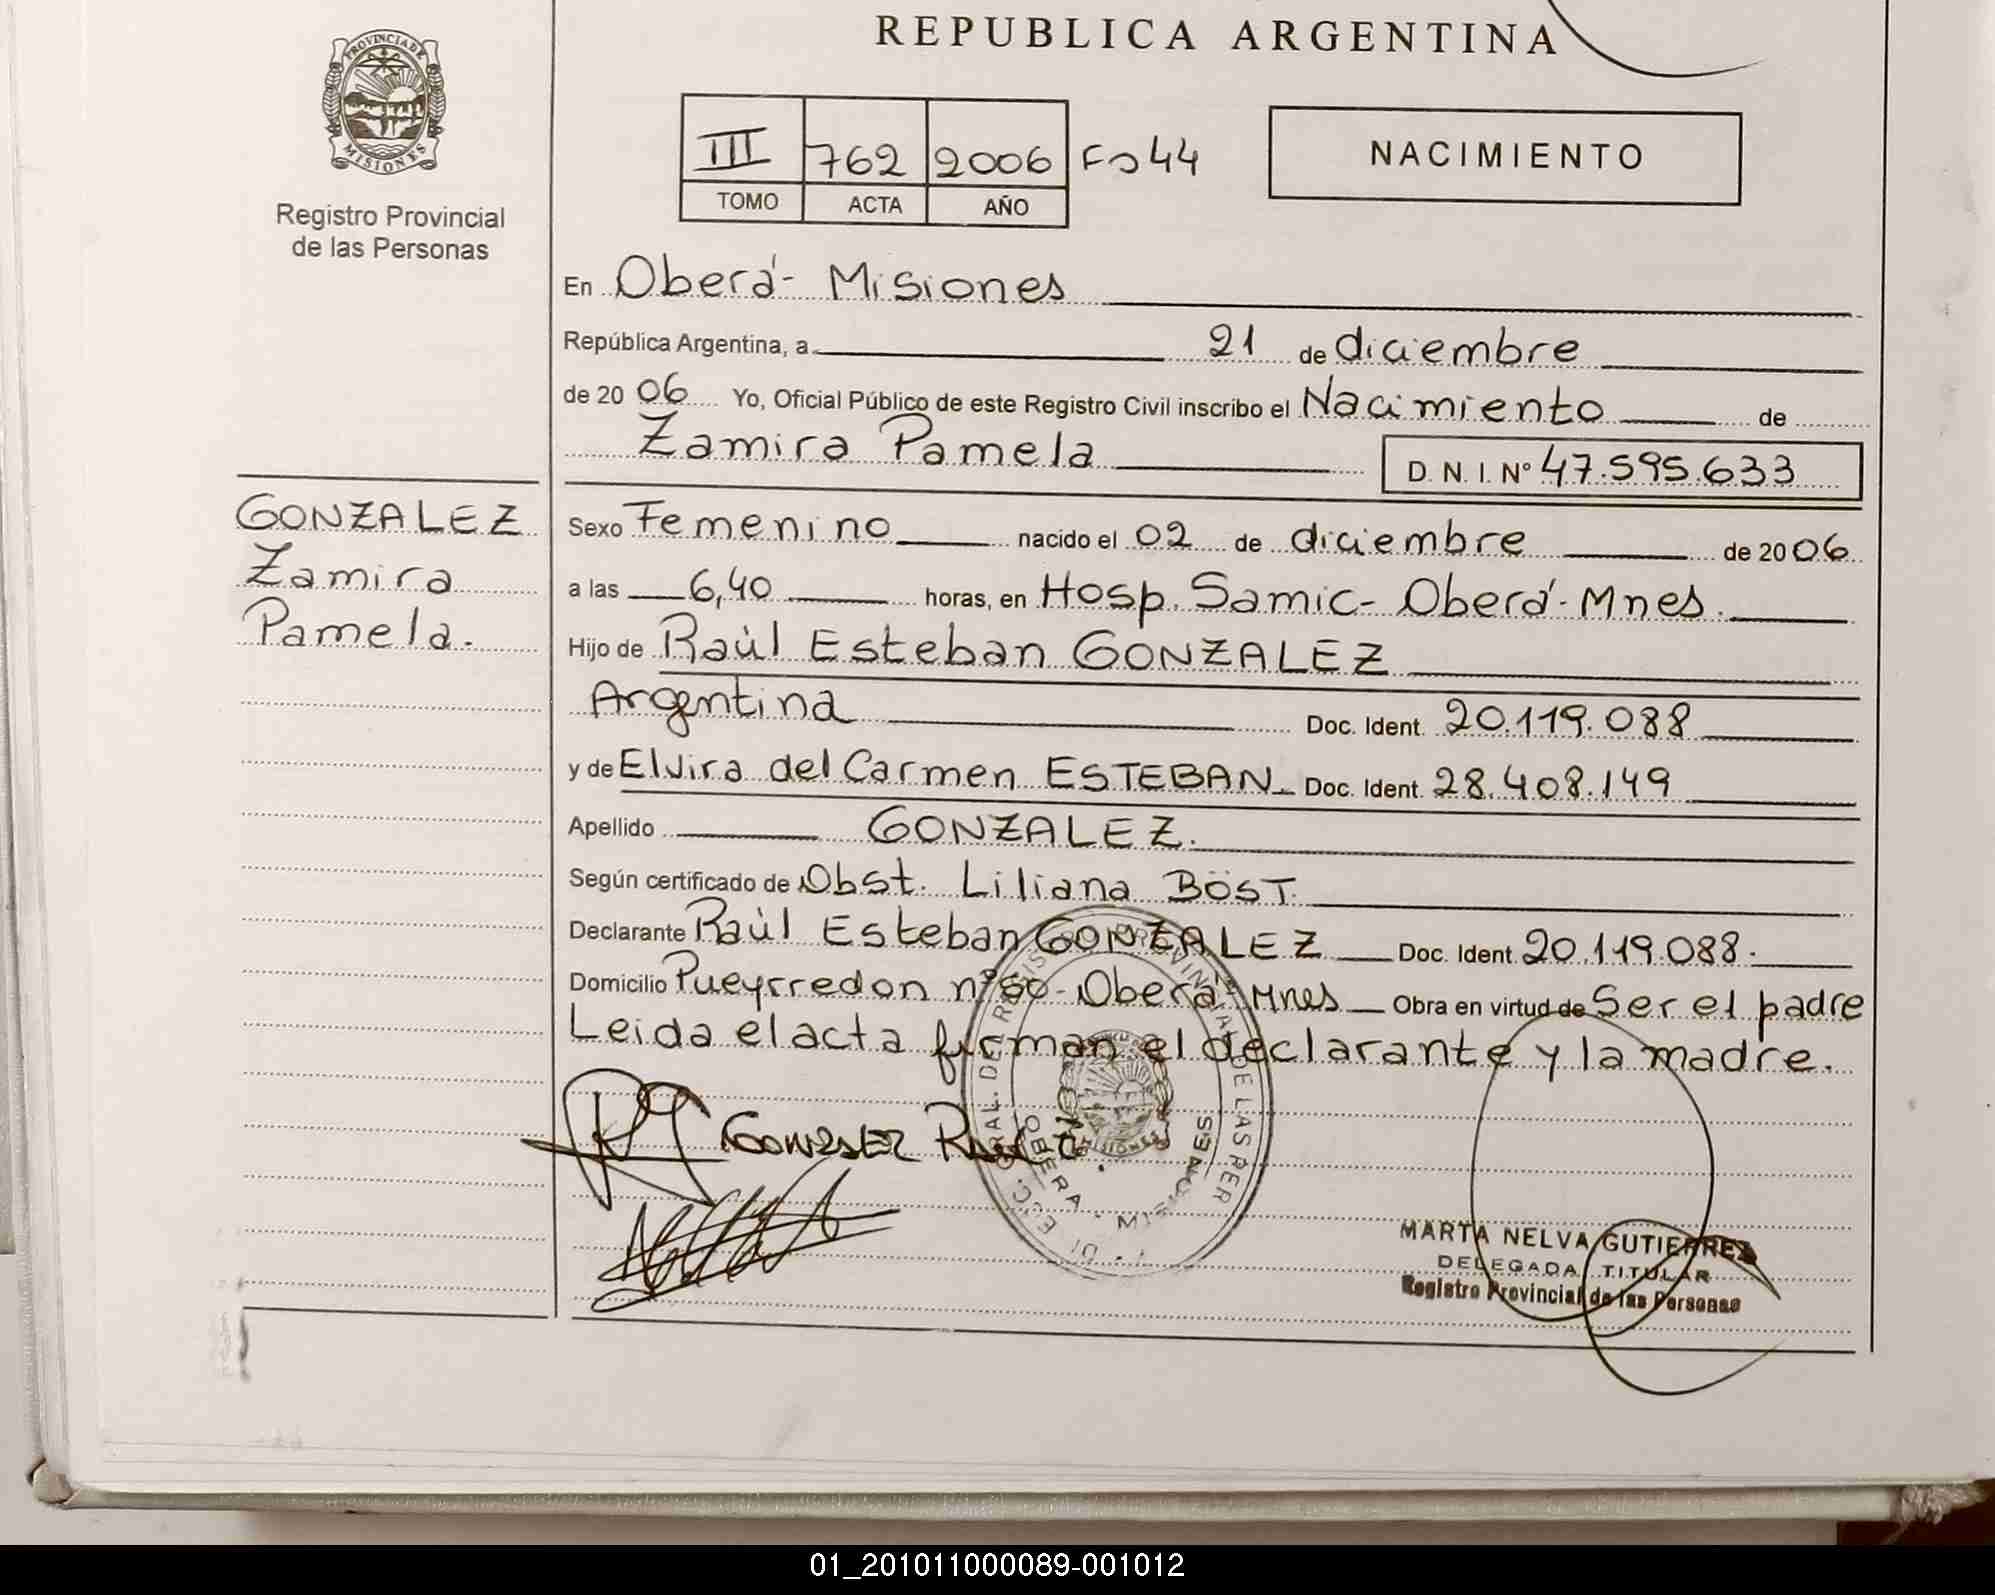 REPUBLICA ARGENTINA
PROVINCIA DE MISIONES
Registro Provincial
de las Personas
III 762 2006 Fo 44
TOMO ACTA AÑO
NACIMIENTO
En Oberá - Misiones
República Argentina, a 21 de diciembre
de 2006 Yo, Oficial Público de este Registro Civil inscribo el Nacimiento de
Zamira Pamela D. N. I. Nº 47.595.633
GONZALEZ
Zamira
Pamela.
Sexo Femenino nacido el 02 de diciembre de 2006
a las 6,40 horas, en Hosp. Samic - Oberá - Mnes.
Hijo de Raùl Esteban GONZALEZ
Argentina Doc. Ident. 20.119.088
y de Elvira del Carmen ESTEBAN Doc. Ident. 28.408.149
Apellido GONZALEZ.
Según certificado de Obst. Liliana BÖST.
Declarante Raùl Esteban GONZALEZ Doc. Ident. 20.119.088.
Domicilio Pueyrredon nº - Oberá Mnes Obra en virtud de Ser el padre
Leida el acta firman el declarante y la madre.
OBERA - MISIONES
MARTA NELVA GUTIERREZ
DELEGADA TITULAR
Registro Provincial de las Personas
01_201011000089-001012